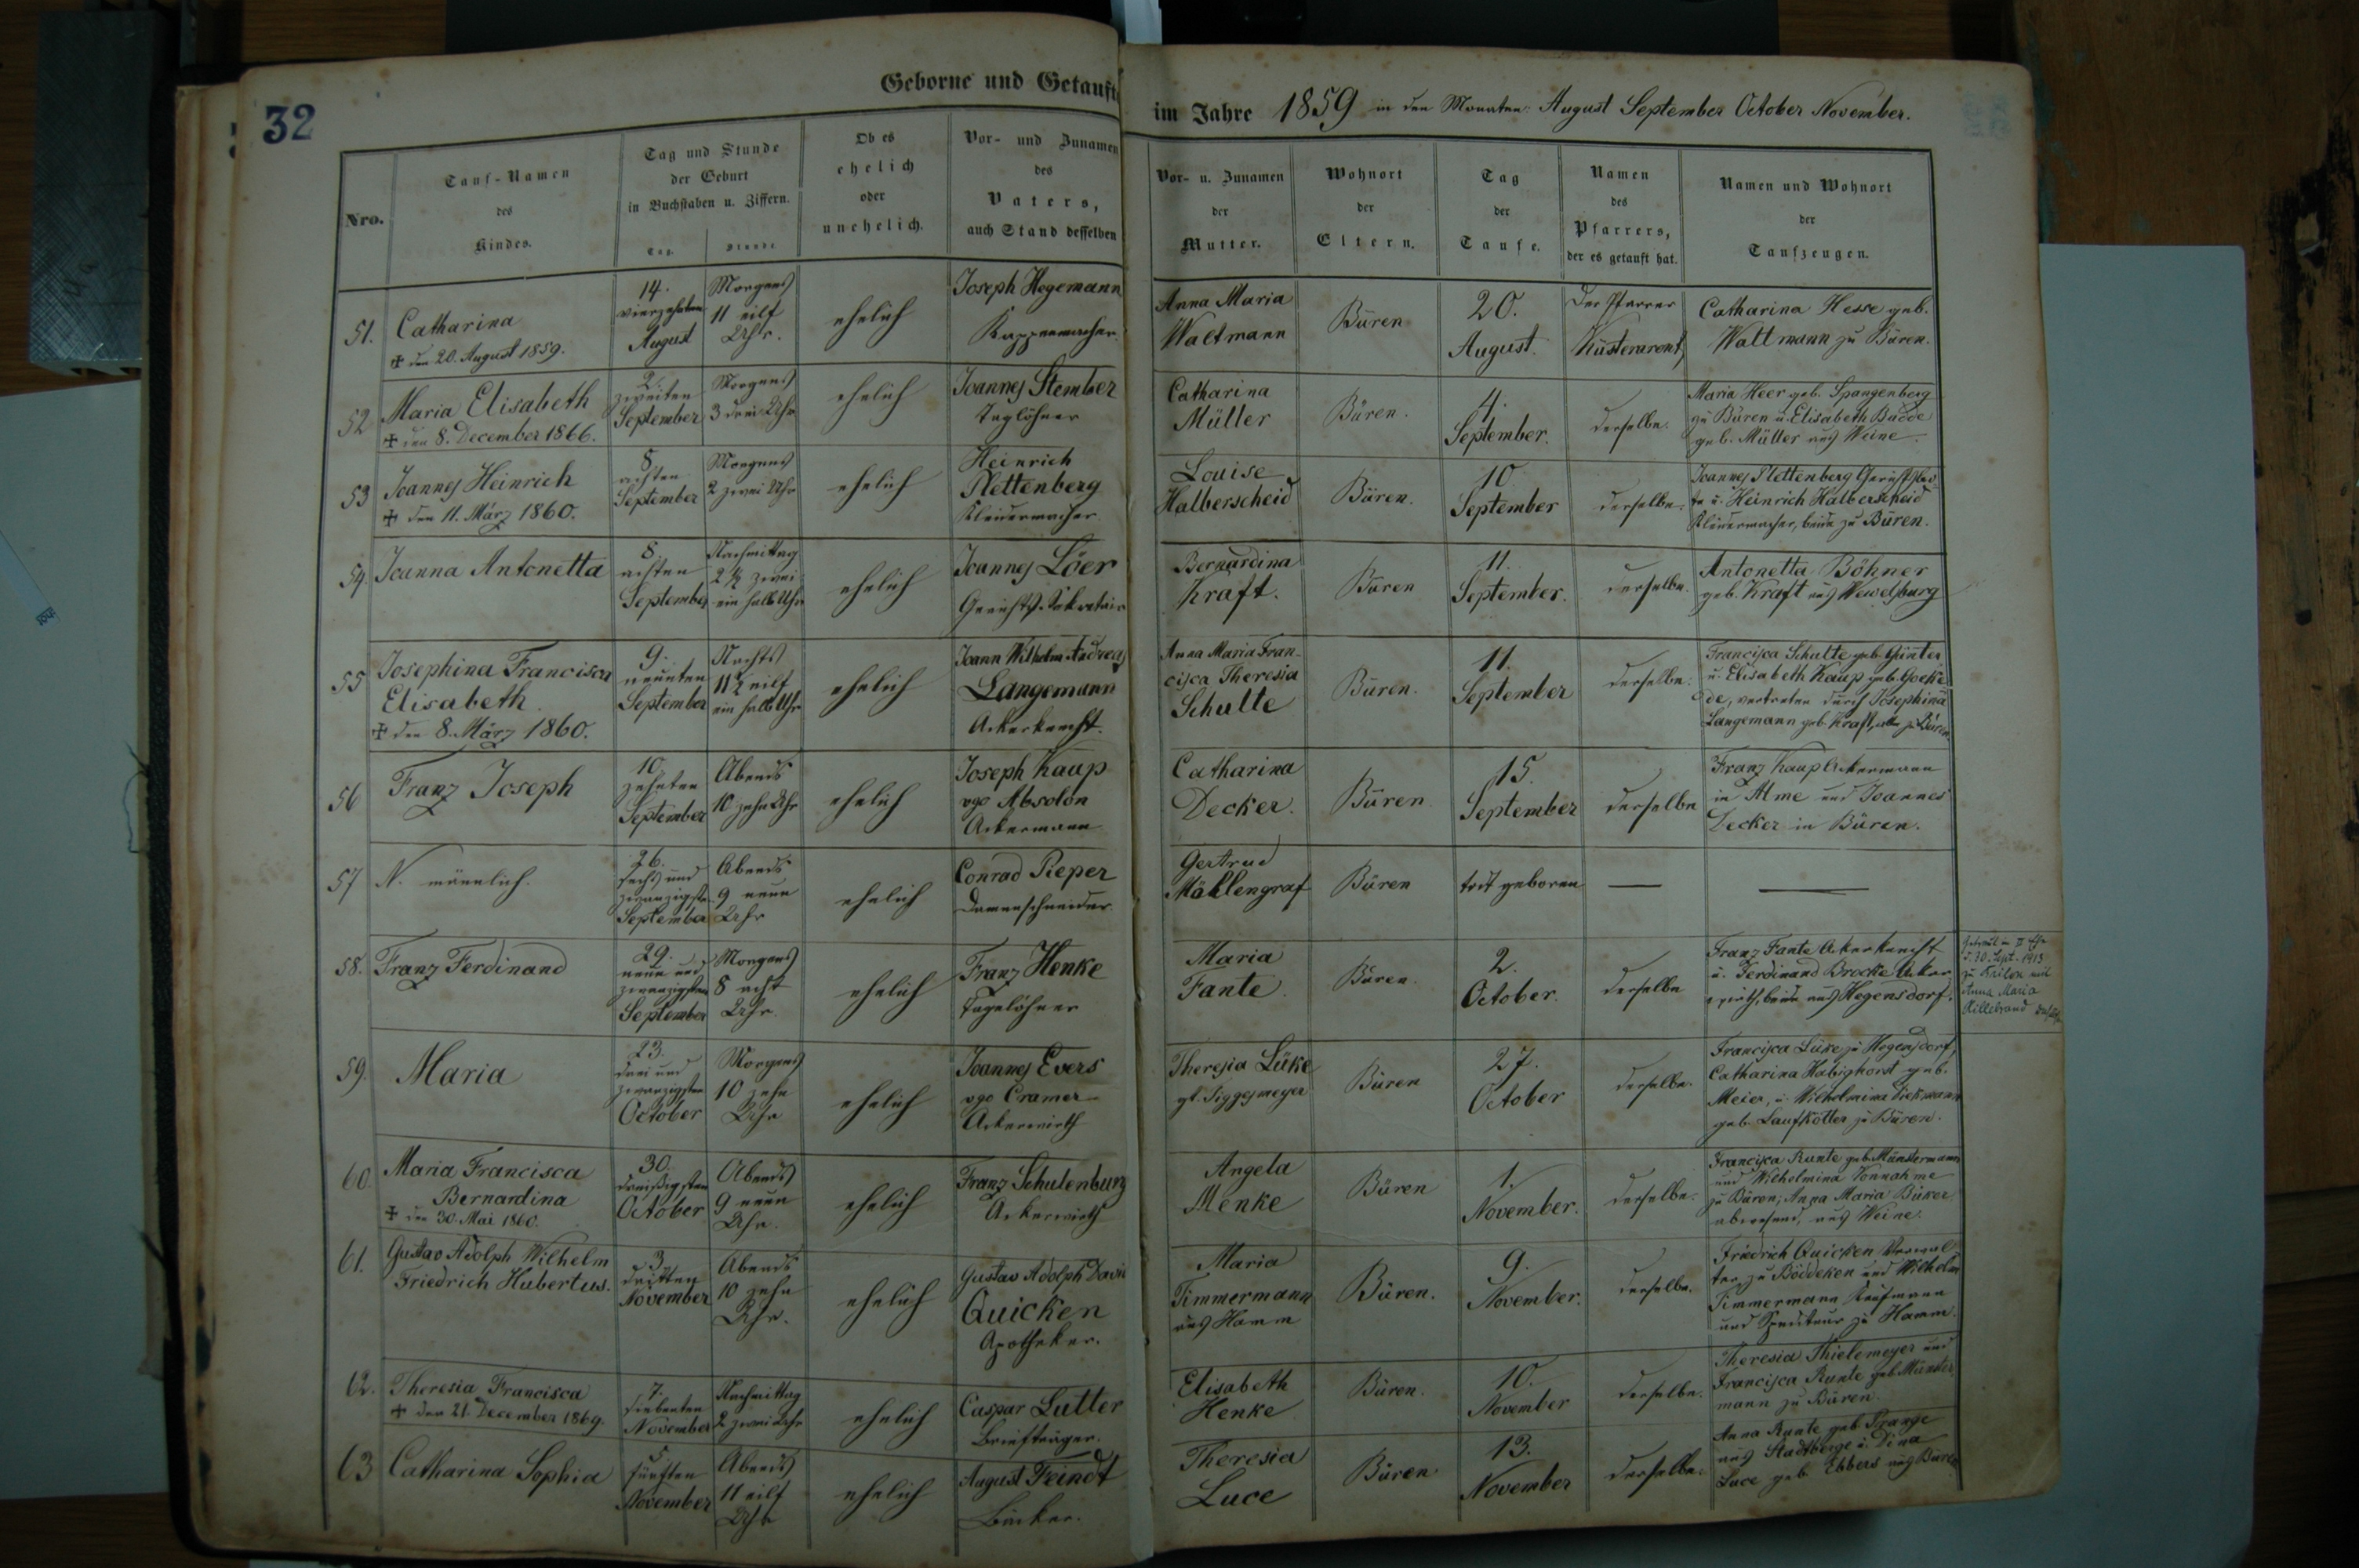 32
Geborne und Getaufte
im Jahre 1859 in den Monaten: August September October November.
Nro.
Tauf-Namen
des
Kindes.
Tag und Stunde
der Geburt
in Buchstaben u. Ziffern.
Tag.
Stunde
Ob es
ehelich
oder
unehelich.
Vor- und Zunamen
des
Vaters,
auch Stand desselben
Vor- u. Zunamen
der
Mutter.
Wohnort
der
Eltern.
Tag
der
Taufe.
Namen
des
Pfarrers,
der es getauft hat.
Namen und Wohnort
der
Taufzeugen.
51.
Catharina
✠ den 20. August 1859.
14.
vierzehnten
August
Morgens
11 eilf
Uhr.
ehelich
Joseph Hegemann
Kappenmacher.
Anna Maria
Waltmann
Büren
20.
August.
Der Pfarrer
Catharina Hesse geb.
Waltmann zu Büren.
52
Maria Elisabeth
✠ den 8. December 1866.
2.
zweiten
September
Morgens
3 drei Uhr
ehelich
Joannes Stember
Taglöhner
Catharina
Müller
Büren.
4.
September.
derselbe.
Maria Heer geb. Spangenberg
zu Büren u. Elisabeth Budde
geb. Müller aus Weine.
53
Joannes Heinrich
✠ den 11. März 1860.
8.
achten
September
Morgens
2 zwei Uhr
ehelich
Heinrich
Plettenberg
Kleidermacher
Louise
Halberscheid
Büren.
10.
September
derselbe.
Joannes Plettenberg Gerichtsbo-
te u. Heinrich Halberscheid
Kleidermacher, beide zu Büren.
54.
Joanna Antonetta
8.
achten
September
Nachmittag
2 ½ zwei
ein halb Uhr
ehelich
Joannes Löer
Gerichts-Sekretair
Bernardina
Kraft.
Büren
11.
September.
derselbe.
Antonetta Böhner
geb. Kraft aus Wewelsburg
55
Josephina Francisca
Elisabeth.
✠ den 8. März 1860.
9.
neunten
September
Nachts
11 ½ eilf
ein halb Uhr
ehelich
Joann Wilhelm Andreas
Langemann
Ackerknecht.
Anna Maria Fran-
cisca Theresia
Schulte
Büren.
11.
September
derselbe.
Francisca Schulte geb. Günter
u. Elisabeth Kaup geb. Goeke
de, vertreten durch Josephina
Langemann geb. Kraft, alle zu Büren.
56
Franz Joseph
10.
zehnten
September
Abends
10 zehn Uhr
ehelich
Joseph Kaup
vgo Absolon
Ackermann
Catharina
Decker.
Büren
15.
September
derselbe
Franz Kaup Ackermann
in Alme und Joannes
Decker in Büren.
57
N. männlich.
26.
sechs und
zwanzigsten
September
Abends
9 neun
Uhr
ehelich
Conrad Pieper
Damenschneider.
Gertrud
Mählengraf
Büren
todt geboren
—
—
58.
Franz Ferdinand
29.
neun und
zwanzigsten
September
Morgens
8 acht
Uhr.
ehelich
Franz Henke
Tagelöhner
Maria
Fante.
Büren.
2.
October.
derselbe
Franz Fante Ackerknecht
u. Ferdinand Brocke Acker
wirth, beide aus Hegensdorf.
Getraut in II Ehe
d. 30. Sept. 1913
zu Brilon mit
Anna Maria
Hillebrand
59.
Maria
23.
drei und
zwanzigsten
October
Morgens
10 zehn
Uhr
ehelich
Joannes Evers
vgo Cramer
Ackerwirth
Theresia Lüke
gt. Siggesmeyer
Büren
27.
October
derselbe.
Francisca Lüke zu Hegensdorf,
Catharina Habighorst geb.
Meier, u. Wilhelmina Diekmann
geb. Laufkötter zu Büren.
60.
Maria Francisca
Bernardina
✠ den 30. Mai 1860.
30.
dreißigsten
October
Abends
9 neun
Uhr.
ehelich
Franz Schulenburg
Ackerwirth
Angela
Menke
Büren
1.
November.
derselbe.
Francisca Runte geb. Münstermann
und Wilhelmina Vonnahme
zu Büren; Anna Maria Büker
abwesend, aus Weine.
61.
Gustav Adolph Wilhelm
Friedrich Hubertus.
3.
dritten
November
Abends
10 zehn
Uhr.
ehelich
Gustav Adolph David
Quicken
Apotheker.
Maria
Timmermann
aus Hamm
Büren.
9.
November.
derselbe.
Friedrich Quicken Verwal
ter zu Böddeken und Wilhelm
Timmermann Kaufmann
und Spediteur zu Hamm.
62.
Theresia Francisca
✠ den 21. December 1869.
7.
siebenten
November
Nachmittag
2 zwei Uhr
ehelich
Caspar Lutter
Briefträger.
Elisabeth
Henke
Büren.
10.
November
derselbe.
Theresia Thielemeyer und
Francisca Runte geb. Münster
mann zu Büren.
63
Catharina Sophia
5
fünften
November
Abends
11 eilf
Uhr
ehelich
August Feindt
Bäcker.
Theresia
Luce
Büren
13.
November
derselbe.
Anna Runte geb. Prange
aus Stadtberge u. Dina
Luce geb. Ebbers aus Büren